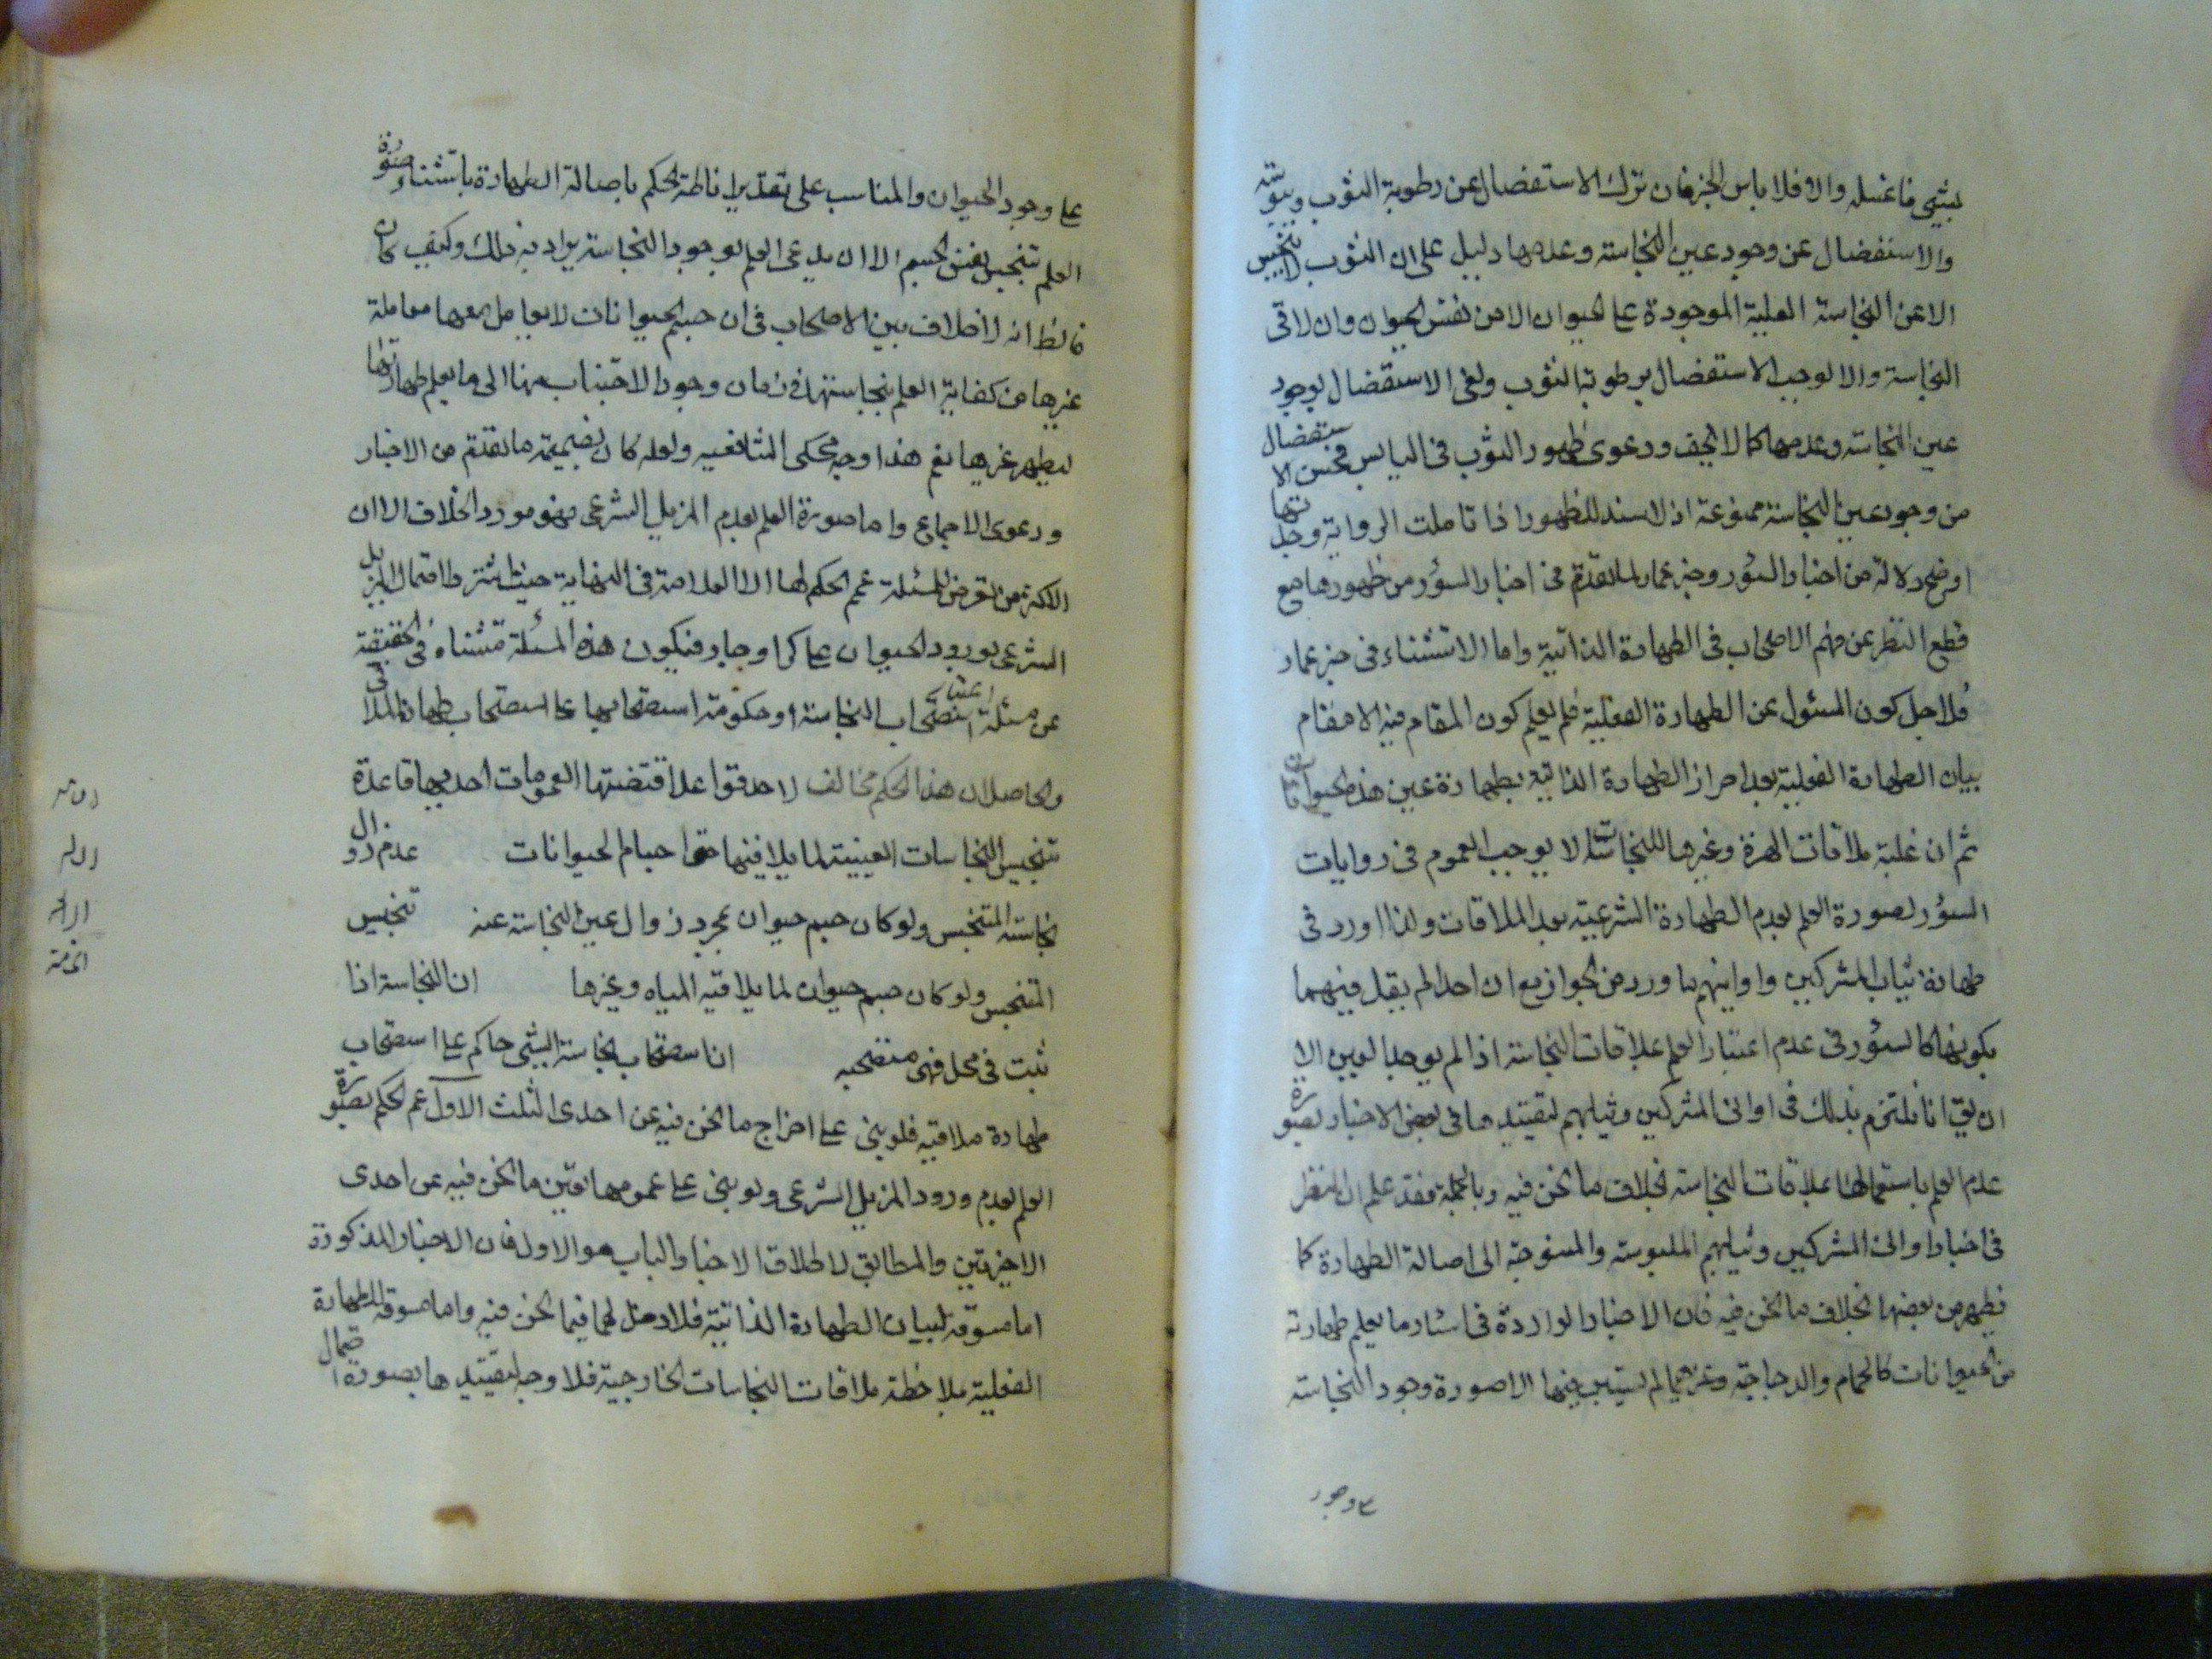 بشئ فاغسله والا فلا باس الخبر فان ترك الاستفصال عن رطوبة الثوب ويبوسته
والاستفصال عن وجود عين النجاسة وعدمها دليل على ان الثوب لا ينجس
الا عن النجاسة العينية الموجودة على الحيوان لا من نفس الحيوان وان لاقى
النجاسة والا لوجب الاستفصال برطوبة الثوب ولغى الاستفصال بوجود
عين النجاسة وعدمها كما لا يخفى ودعوى ظهور الثوب فى اليابس فحسن الاستفصال
من وجود عين النجاسة ممنوعة اذ لا سند للظهور اذا تاملت الرواية وجدتها
اوضح دلالة من اخبار السؤر وخبر عمار لما تقدم فى اخبار السؤر من ظهورها مع
قطع النظر عن فهم الاصحاب فى الطهارة الذاتية واما الاستثناء فى خبر عمار
فلاجل كون المسئول عن الطهارة الفعلية فلم يعلم كون المقام فيه الا مقام
بيان الطهارة الفعلية بعد احراز الطهارة الذاتية بطهارة عين هذه الحيوانات
ثم ان غلبة ملاقات الهرة وغيرها للنجاسات لا يوجب العموم فى روايات
السؤر لصورة العلم بعدم الطهارة الشرعية بعد الملاقات ولذا اورد فى
طهارة ثياب المشركين واوانيهم ما ورد من الجواز مع ان احدا لم يقل فيهما
بكونها كالسؤر فى عدم اعتبار العلم بملاقات النجاسة اذا لم يوجد العين الا
ان يق انا نلتزم بذلك فى اوانى المشركين وثيابهم لتقييد ما فى بعض الاخبار بصورة
عدم العلم باستعمالها بملاقات النجاسة بخلاف ما نحن فيه وبالجملة فقد علم ان النظر
فى اخبار اوانى المشركين وثيابهم الملبوسة والمنسوجة الى اصالة الطهارة كما
يظهر من بعضها بخلاف ما نحن فيه فان الاخبار الواردة فى اسئار ما يعلم طهارته
من الحيوانات كالحمام والدجاجة وغيرهما لم يستثن فيها الا صورة وجود النجاسة
على وجود
على وجود الحيوان والمناسب على تقدير اناطة الحكم باصالة الطهارة باستثناء صورة
العلم بتنجس نفس الجسم الا ان يدعى العلم بوجود النجاسة يراد به ذلك وكيف كان
فالظ انه لا خلاف بين الاصحاب فى ان جسم الحيوانات لا يعامل معها معاملة
غيرها من كفاية العلم بنجاستها فى زمان وجوب الاجتناب منها الى ما يعلم طهارتها
ليطهر غيرها نعم هذا وجه محكى الشافعيه ولعله كان بضميمة ما تقدم من الاخبار
ودعوى الاجماع واما صورة العلم بعدم المزيل الشرعى فهو مورد الخلاف الا ان
الاكثر ممن تعرض للمسئلة عمم الحكم لها الا العلامة فى النهاية حيث اشترط احتمال المزيل
الشرعى بورود الحيوان على كر او جار فيكون هذه المسئلة مستثناة فى الحقيقة
عن مسئلة اعتبار استصحاب النجاسة او حكومة استصحابها على استصحاب طهارة الملاقى
والحاصل ان هذا الحكم مخالف لاحد قواعد اقتضتها العمومات احديها قاعدة
تنجيس النجاسات العينية لما يلاقيها حتى اجسام الحيوانات عدم زوال
نجاسة المتنجس ولو كان جسم حيوان بمجرد زوال عين النجاسة عنه تنجيس
المتنجس ولو كان جسم حيوان لما يلاقيه المياه وغيرها ان النجاسة اذا
ثبت فى محل فهى مستصحبه ان استصحاب نجاسة الشئ حاكم على استصحاب
طهارة ملاقيه فلو بنى على اخراج ما نحن فيه عن احدى الثلث الاول عم الحكم بصورة
العلم بعدم ورود المزيل الشرعى ولو بنى على عمومها تعين ما نحن فيه عن احدى
الاخيرتين والمطابق لاطلاق الاخبار والباب هو الاول فان الاخبار المذكورة
اما مسوقة لبيان الطهارة الذاتية فلا دخل لها فيما نحن فيه واما مسوقة للطهارة
الفعلية بملاحظة ملاقات النجاسات الخارجية فلا وجه لتقييدها بصورة احتمال